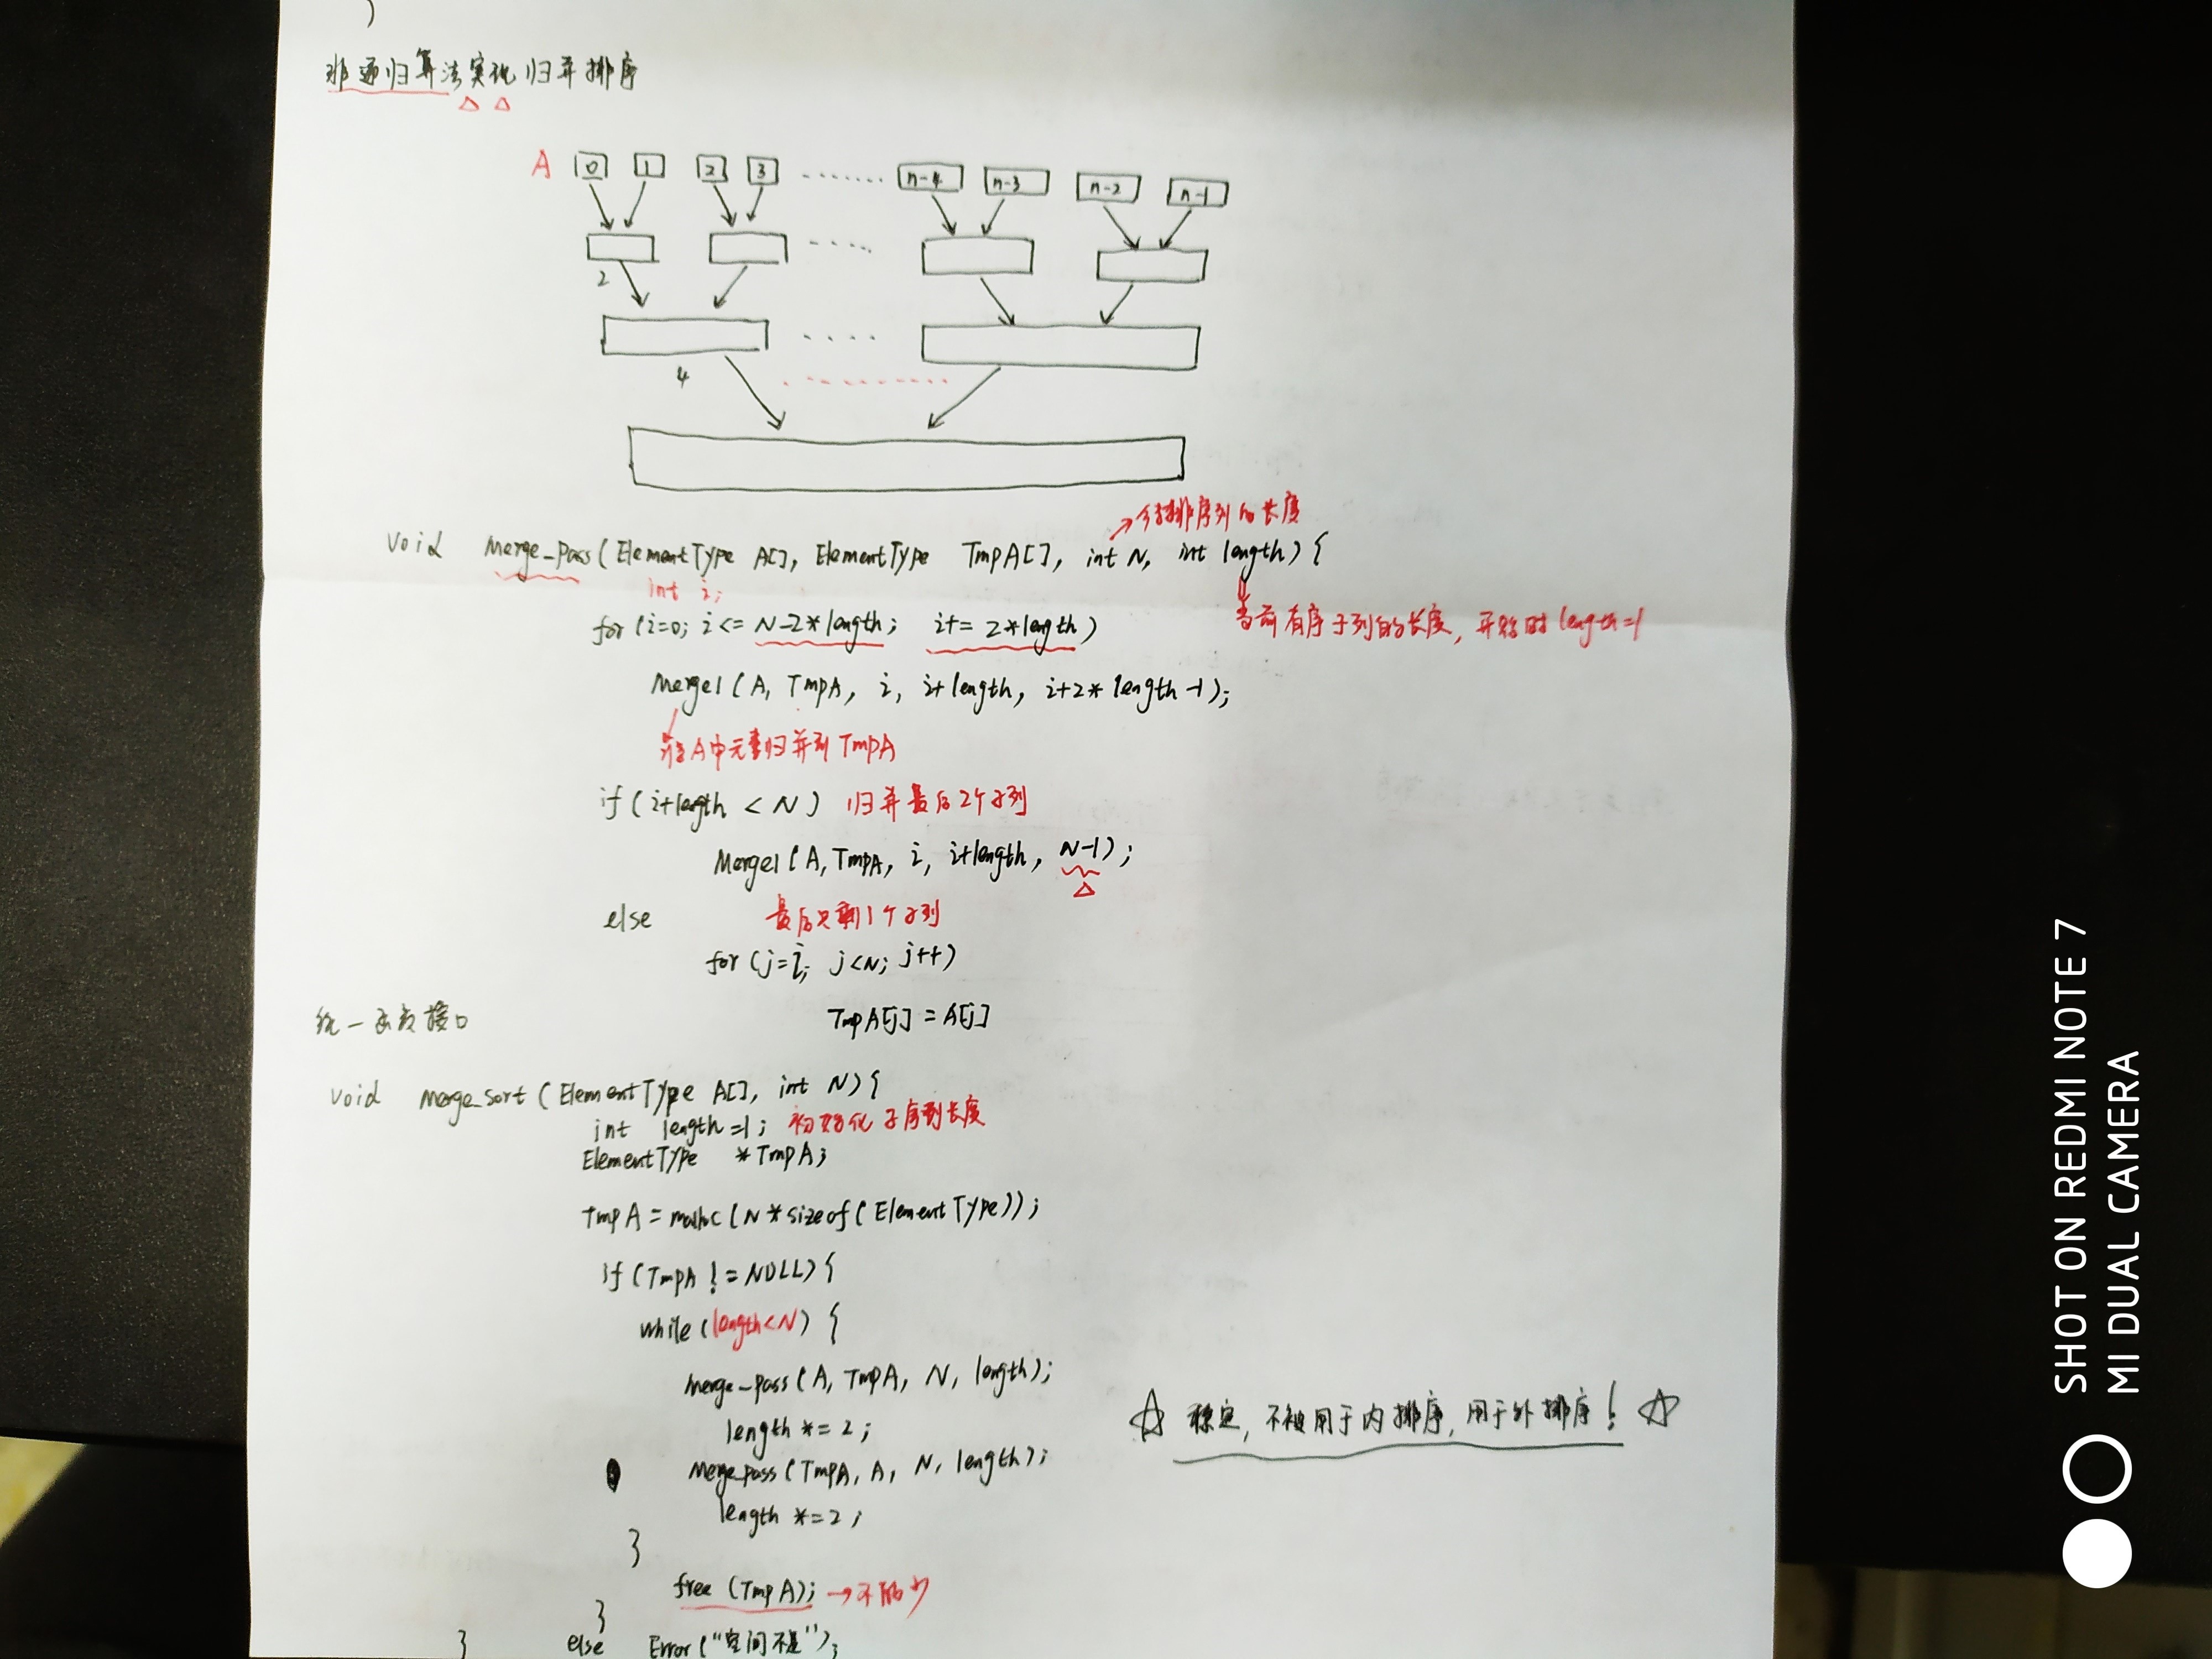 非递归算法实现归并排序
A 0 1 2 3 ........ n-4 n-3 n-2 n-1
2
4
→待排序列的长度
void Merge_Pass(ElementType A[], ElementType TmpA[], int N, int length){
int i;
当前有序子列的长度,开始时length=1
for(i=0; i<=N-2*length; i+=2*length)
Merge1(A, TmpA, i, i+length, i+2*length-1);
将A中元素归并到TmpA
if(i+length < N) 归并最后2个子列
Merge1(A, TmpA, i, i+length, N-1);
else 最后只剩1个子列
for(j=i; j<N; j++)
TmpA[j]=A[j]
统一函数接口
void Merge_Sort(ElementType A[], int N){
int length=1; 初始化子序列长度
ElementType *TmpA;
TmpA=malloc(N*sizeof(ElementType));
if(TmpA != NULL){
while(length<N){
Merge_pass(A, TmpA, N, length);
length *=2;
Merge_pass(TmpA, A, N, length);
length *=2;
}
free(TmpA); →不能少
}
else Error("空间不足");
}
☆ 稳定,不被用于内排序,用于外排序! ☆
SHOT ON REDMI NOTE 7
MI DUAL CAMERA